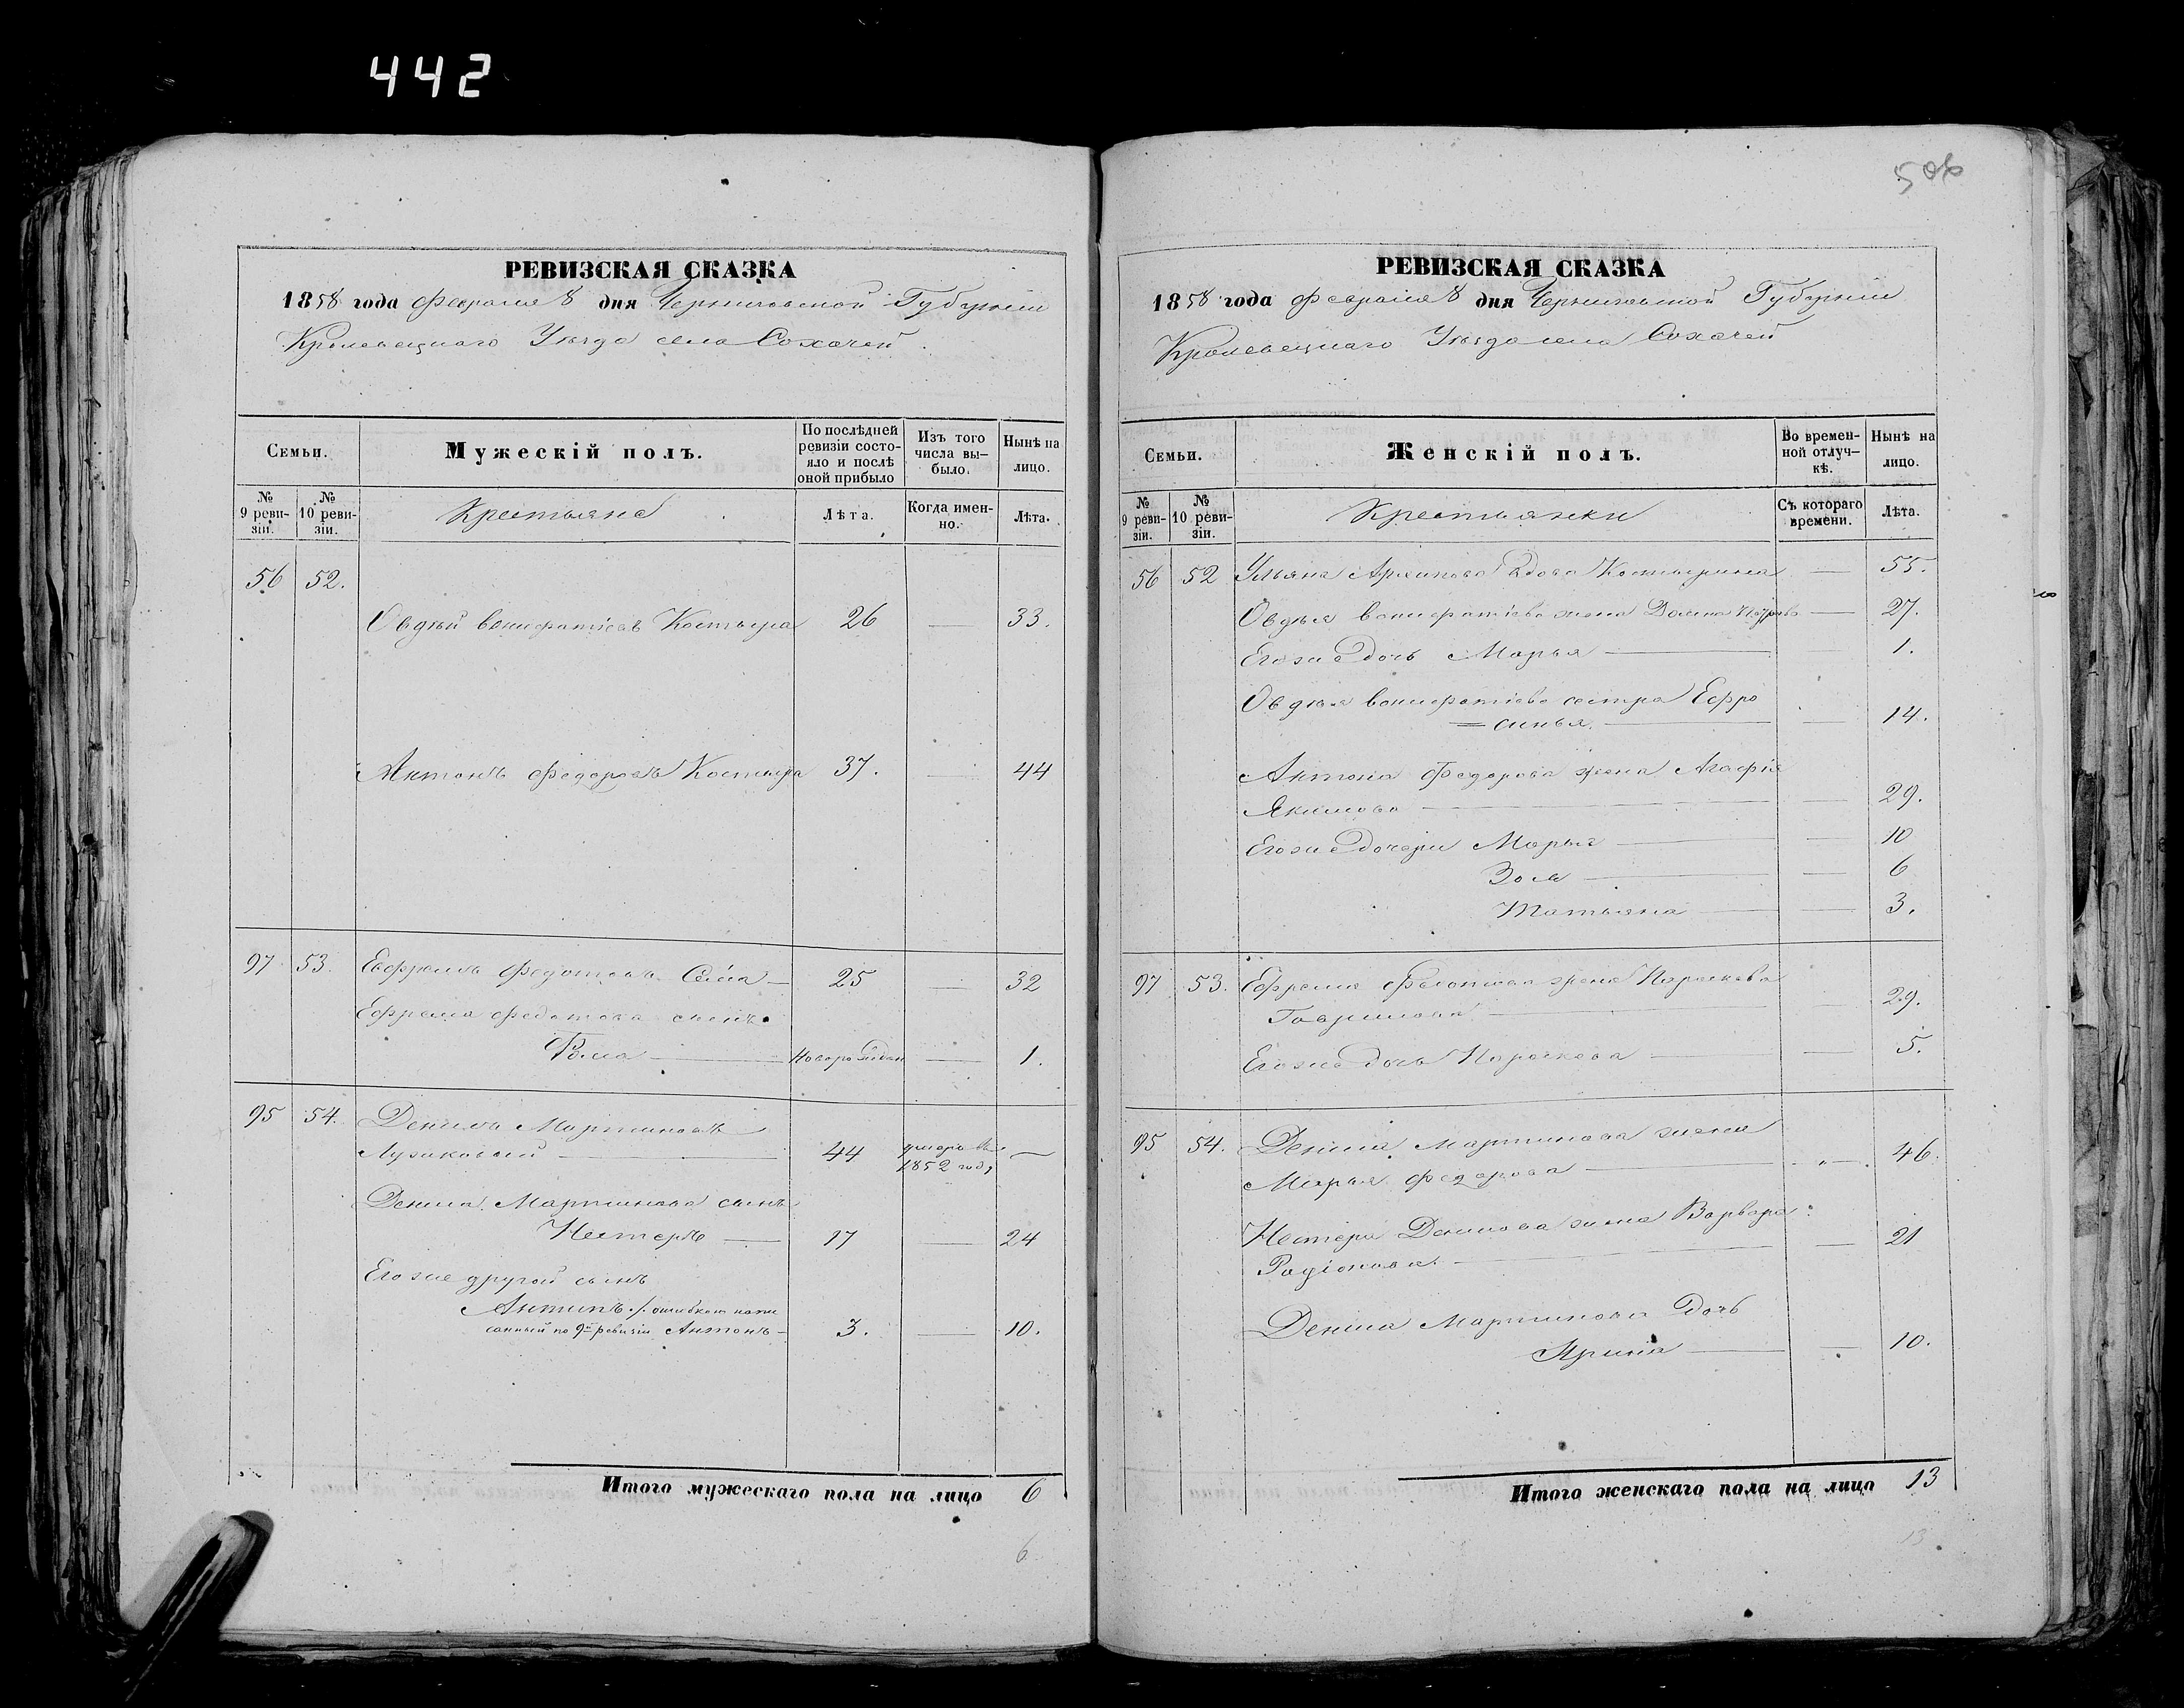 442
506
РЕВИЗСКАЯ СКАЗКА
1858 года Февраля 8 дня Черниговской Губерніи
Кролевецкаго Уезда села Сохачей
Семьи.
Мужескій полъ.
По послѣдней ревизіи состояло и послѣ оной прибыло
Изъ того числа выбыло.
Нынѣ на лицо.
№ 9 ревизіи.
№ 10 ревизіи.
Крестьяне
Лѣта.
Когда именно.
Лѣта.
56 52.
Овдѣй Вонифатіевъ Костыра 26 — 33.
Антонъ Федоровъ Костыра 37. — 44
97 53. Ефремъ Федотовъ — 25 — 32
Ефрема Федотова сынъ
Фома — Новорожден — 1.
95 54. Денисъ Мартиновъ
— 44 умеръ въ 1852 году —
Мартинова сынъ
Нестеръ — 17 — 24
Его же другой сынъ
Антипъ ./. ошибкою напи
санный по 9й ревизіи Антонъ — 3. — 10.
Итого мужескаго пола на лицо 6
6
РЕВИЗСКАЯ СКАЗКА
1858 года Февраля 8 дня Черниговской Губерніи
Кролевецкаго Уезда села Сохачей
Семьи.
Женскій полъ.
Во временной отлучкѣ.
Нынѣ на лицо.
№ 9 ревизіи.
№ 10 ревизіи.
Крестьянки
Съ котораго времени.
Лѣта.
56 52 Ульяна Архипова вдова Костырина — 55.
Овдѣя Вонифатіева жена — 27.
Его же дочь Марья — 1.
Овдѣя Вонифатіева сестра Ефро
=синья. — 14.
Антона Федорова жена Агафія
Якимова — 29.
Его же дочери Марья — 10
Зоя — 6
Татьяна — 3.
97 53. Ефрема Федотова жена Параскева
Гаврилова — 29.
Его же дочь Параскева — 5.
95 54. Мартинова жена
Марья Федорова — 46.
Нестера жена Варвара
Родіонова. — 21
Мартинова дочь
Ярина — 10.
Итого женскаго пола на лицо 13
13